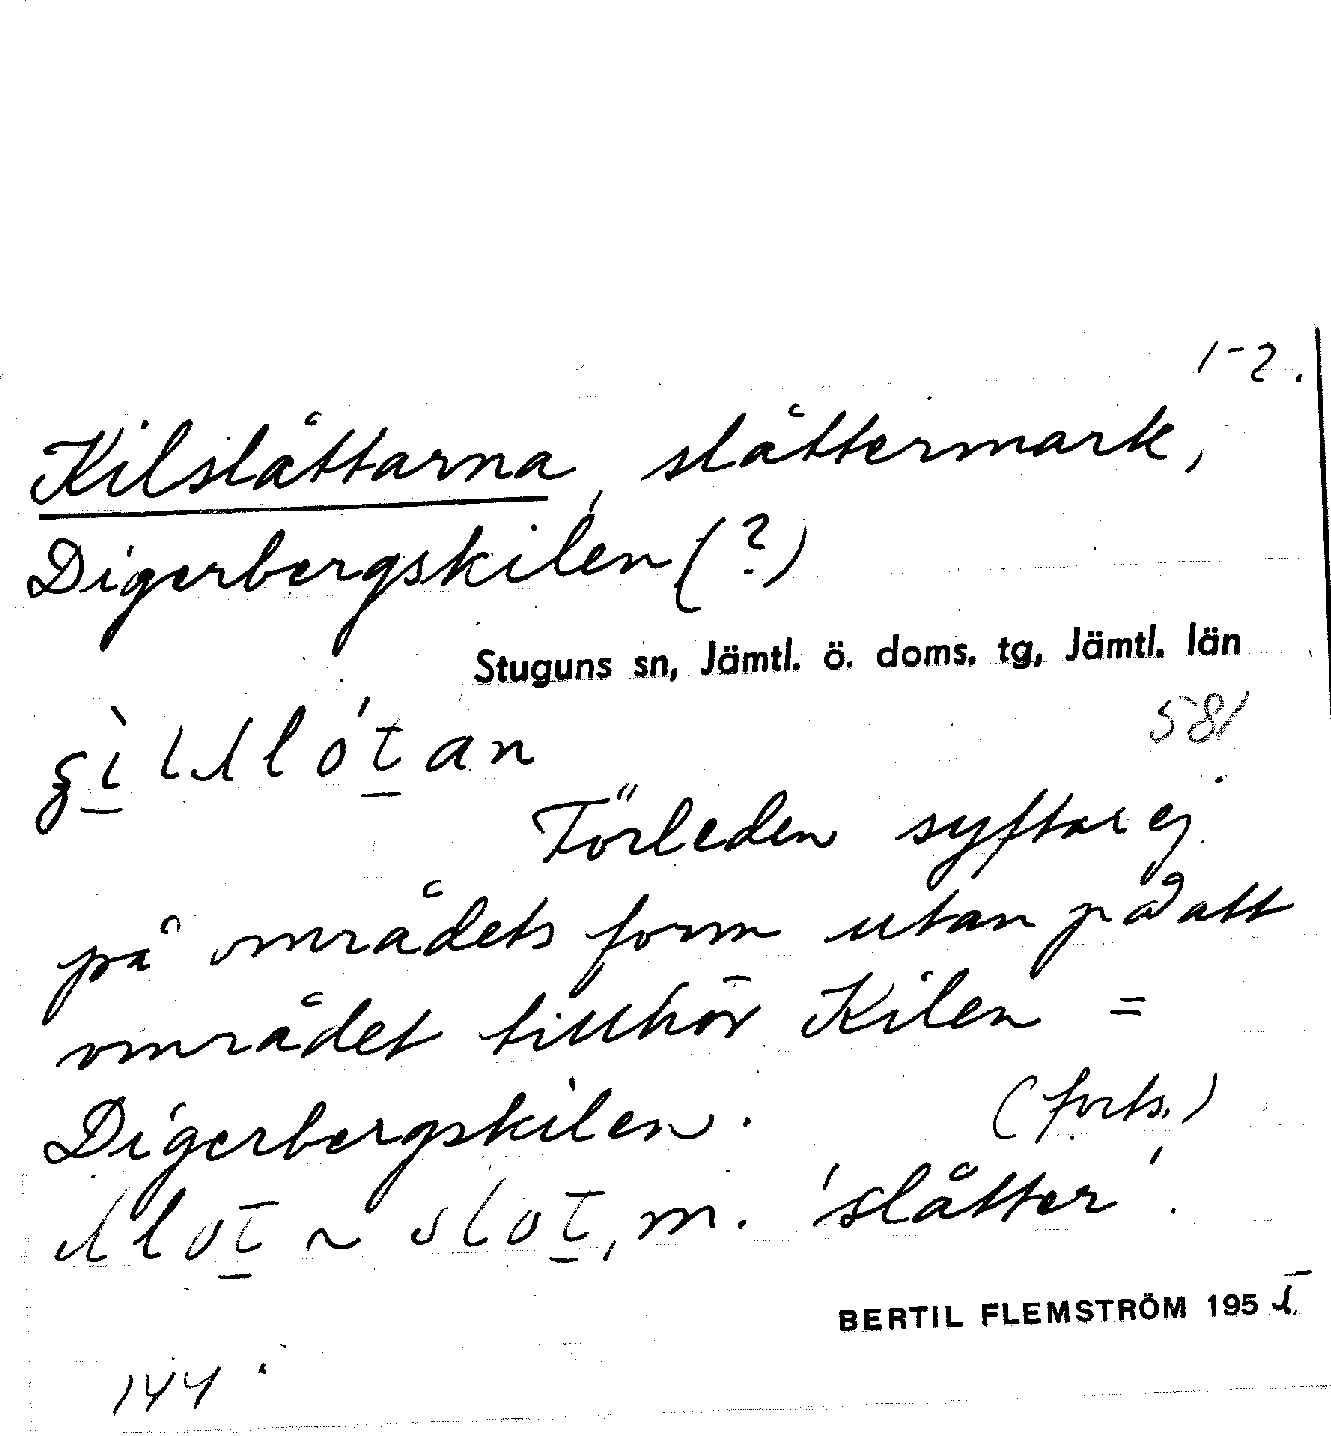 1-2.
Kilslåttarna, slåttermark,
Digerbergskilen (?)
Stuguns sn, Jämtl. ö. doms. tg, Jämtl. län
581
Förleden syftar ej
på områdets form utan på att
området tillhör Kilen =
Digerbergskilen. (forts.)
m. 'slåtter'.
BERTIL FLEMSTRÖM 195
144